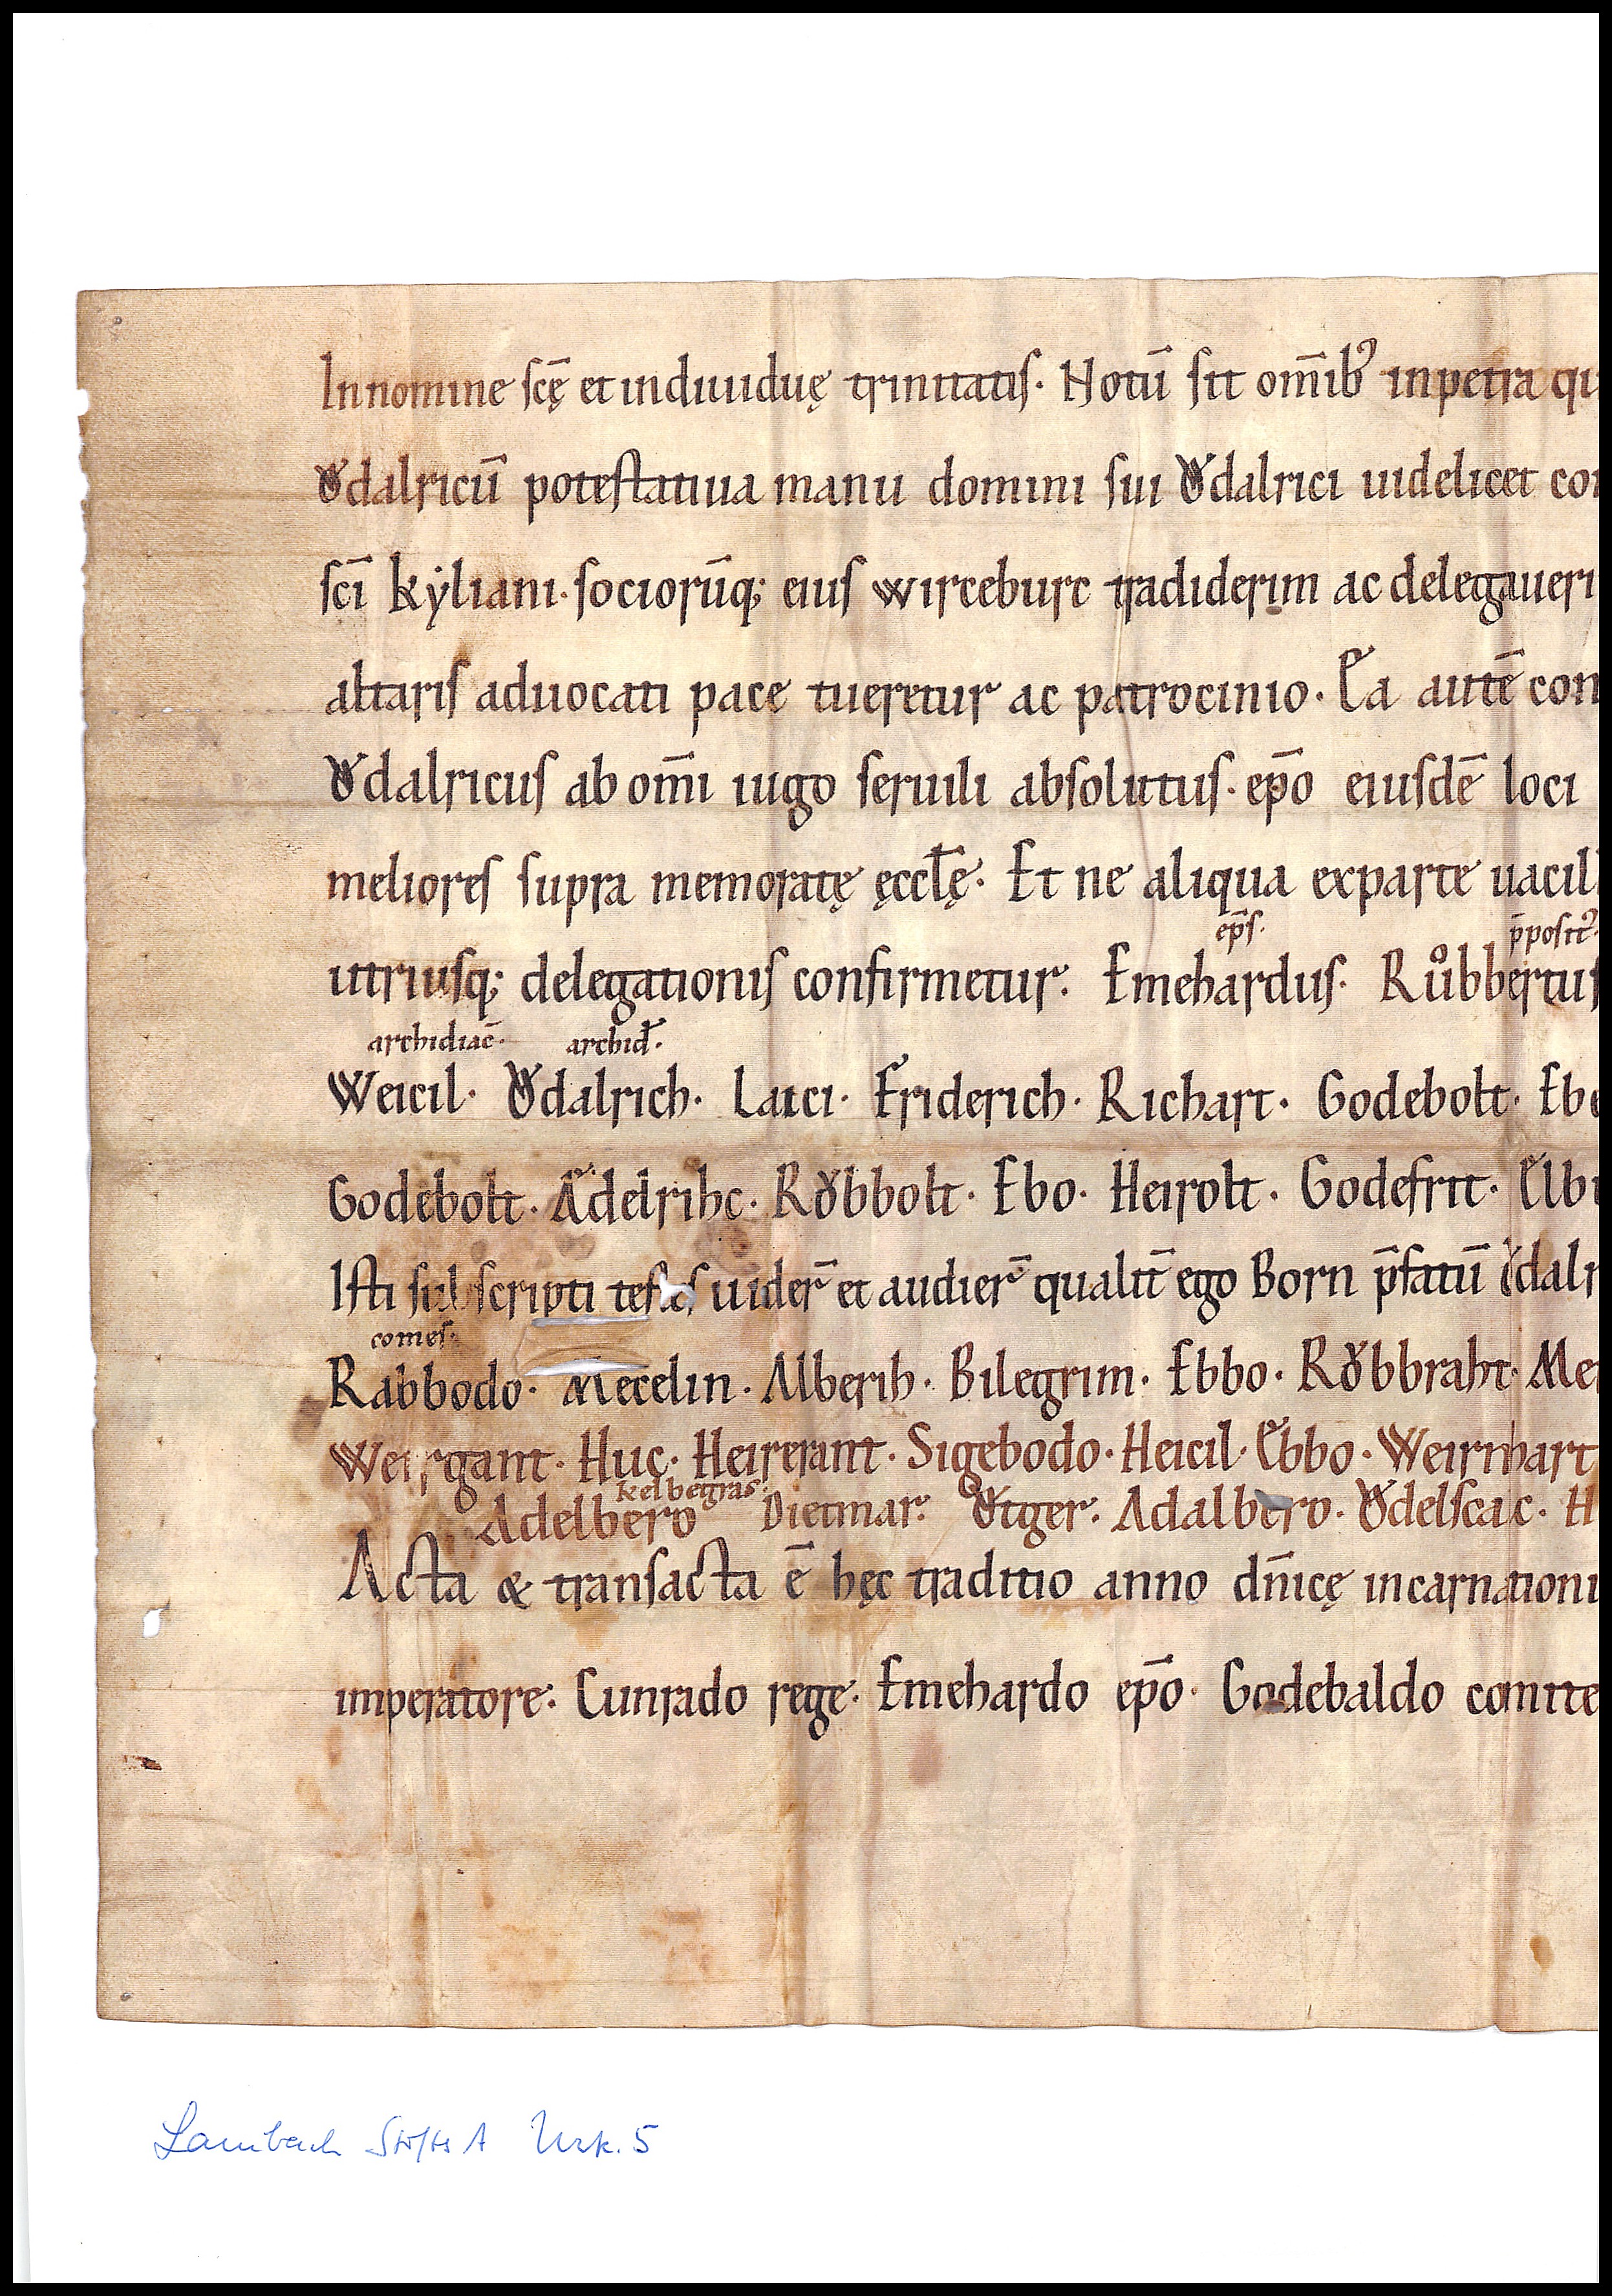 In nomine scē et indiuiduę trinitatis. Notū sit om̄ib; in petra
Ǒdalricū potestatiua manu domini sui Ǒdalrici uidelicet
sc̄i kẏliani. sociorūq; eius wirceburc tradiderim ac delegaueri
altaris aduocati pace tueretur ac patrocinio. Ea autē con
Ǒdalricus ab om̄i iugo seruili absolutus. ep̄o eiusdē loci
meliores supra memoratę ęccl̄ę. Et ne aliqua ex parte uacil
ep̄s. p̄posit᷒
utriusq; delegationis confirmetur. Emehardus. Růbbertus
archidiac̄. archid̄.
Weicil. Ǒdalrich. Laici. Friderich. Richart. Godebolt. Ebe
Godebolt. Adelrihc. Rǒbbolt. Ebo. Heirolt. Godefrit.
Isti subscripti testes uider̄ et audier̄ qualit̄ ego Born p̄fatū Ǒdalr
comes.
Rabbodo. Mecelin. Alberih. Bilegrim. Ebbo. Rǒbbraht.
Huc. Sigebodo. Heicil. Ebbo.
kelbegras.
Adelbero Dietmar. Ǒtger. Adalbero. Ǒdelscalc. H
Acta & transacta ē hęc traditio anno dn̄icę incarnationi
imperatore. Cunrado rege. Emehardo ep̄o. Godebaldo comite
Lambach StiftsA Urk. 5